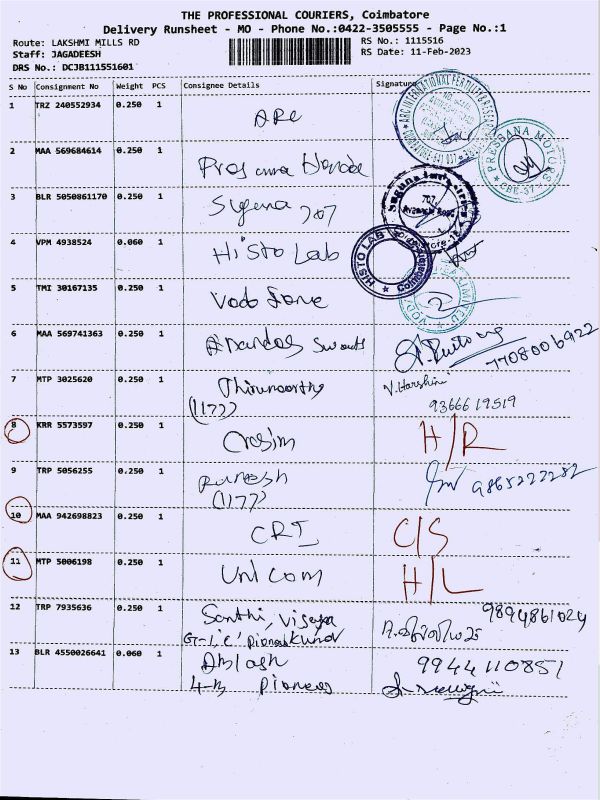 THE PROFESSIONAL COURIERS, Coimbatore
Delivery Runsheet - MO - Phone No.:0422-3505555 - Page No.:1
Route: LAKSHMI MILLS RD
Staff: JAGADEESH
DRS No.: DCJB111551601
RS No.: 1115516
RS Date: 11-Feb-2023
S No Consignment No Weight PCS Consignee Details Signature
1 TRZ 240552934 0.250 1 ARC
2 MAA 569684614 0.250 1 Honda
PRESSANA MOTORS
CBE-37
3 BLR 5050861170 0.250 1 Suguna 707
707,
4 VPM 4938524 0.060 1 Histo Lab
HISTO LAB
Coimbatore
5 TMI 30167135 0.250 1 Vodafone
6 MAA 569741363 0.250 1 Anandas Sweets 7708006922
7 MTP 3025620 0.250 1 Thirumoorthy V. Harshini
(1177) 9366619519
8 KRR 5573597 0.250 1 H/R
9 TRP 5056255 0.250 1 Ramesh 9865222282
(1177)
10 MAA 942698823 0.250 1 CRI C/S
11 MTP 5006198 0.250 1 Uni Com H/L
12 TRP 7935636 0.250 1 Santhi, Vijaya 9894861024
13 BLR 4550026641 0.060 1 9944110851
4-B Pioneer